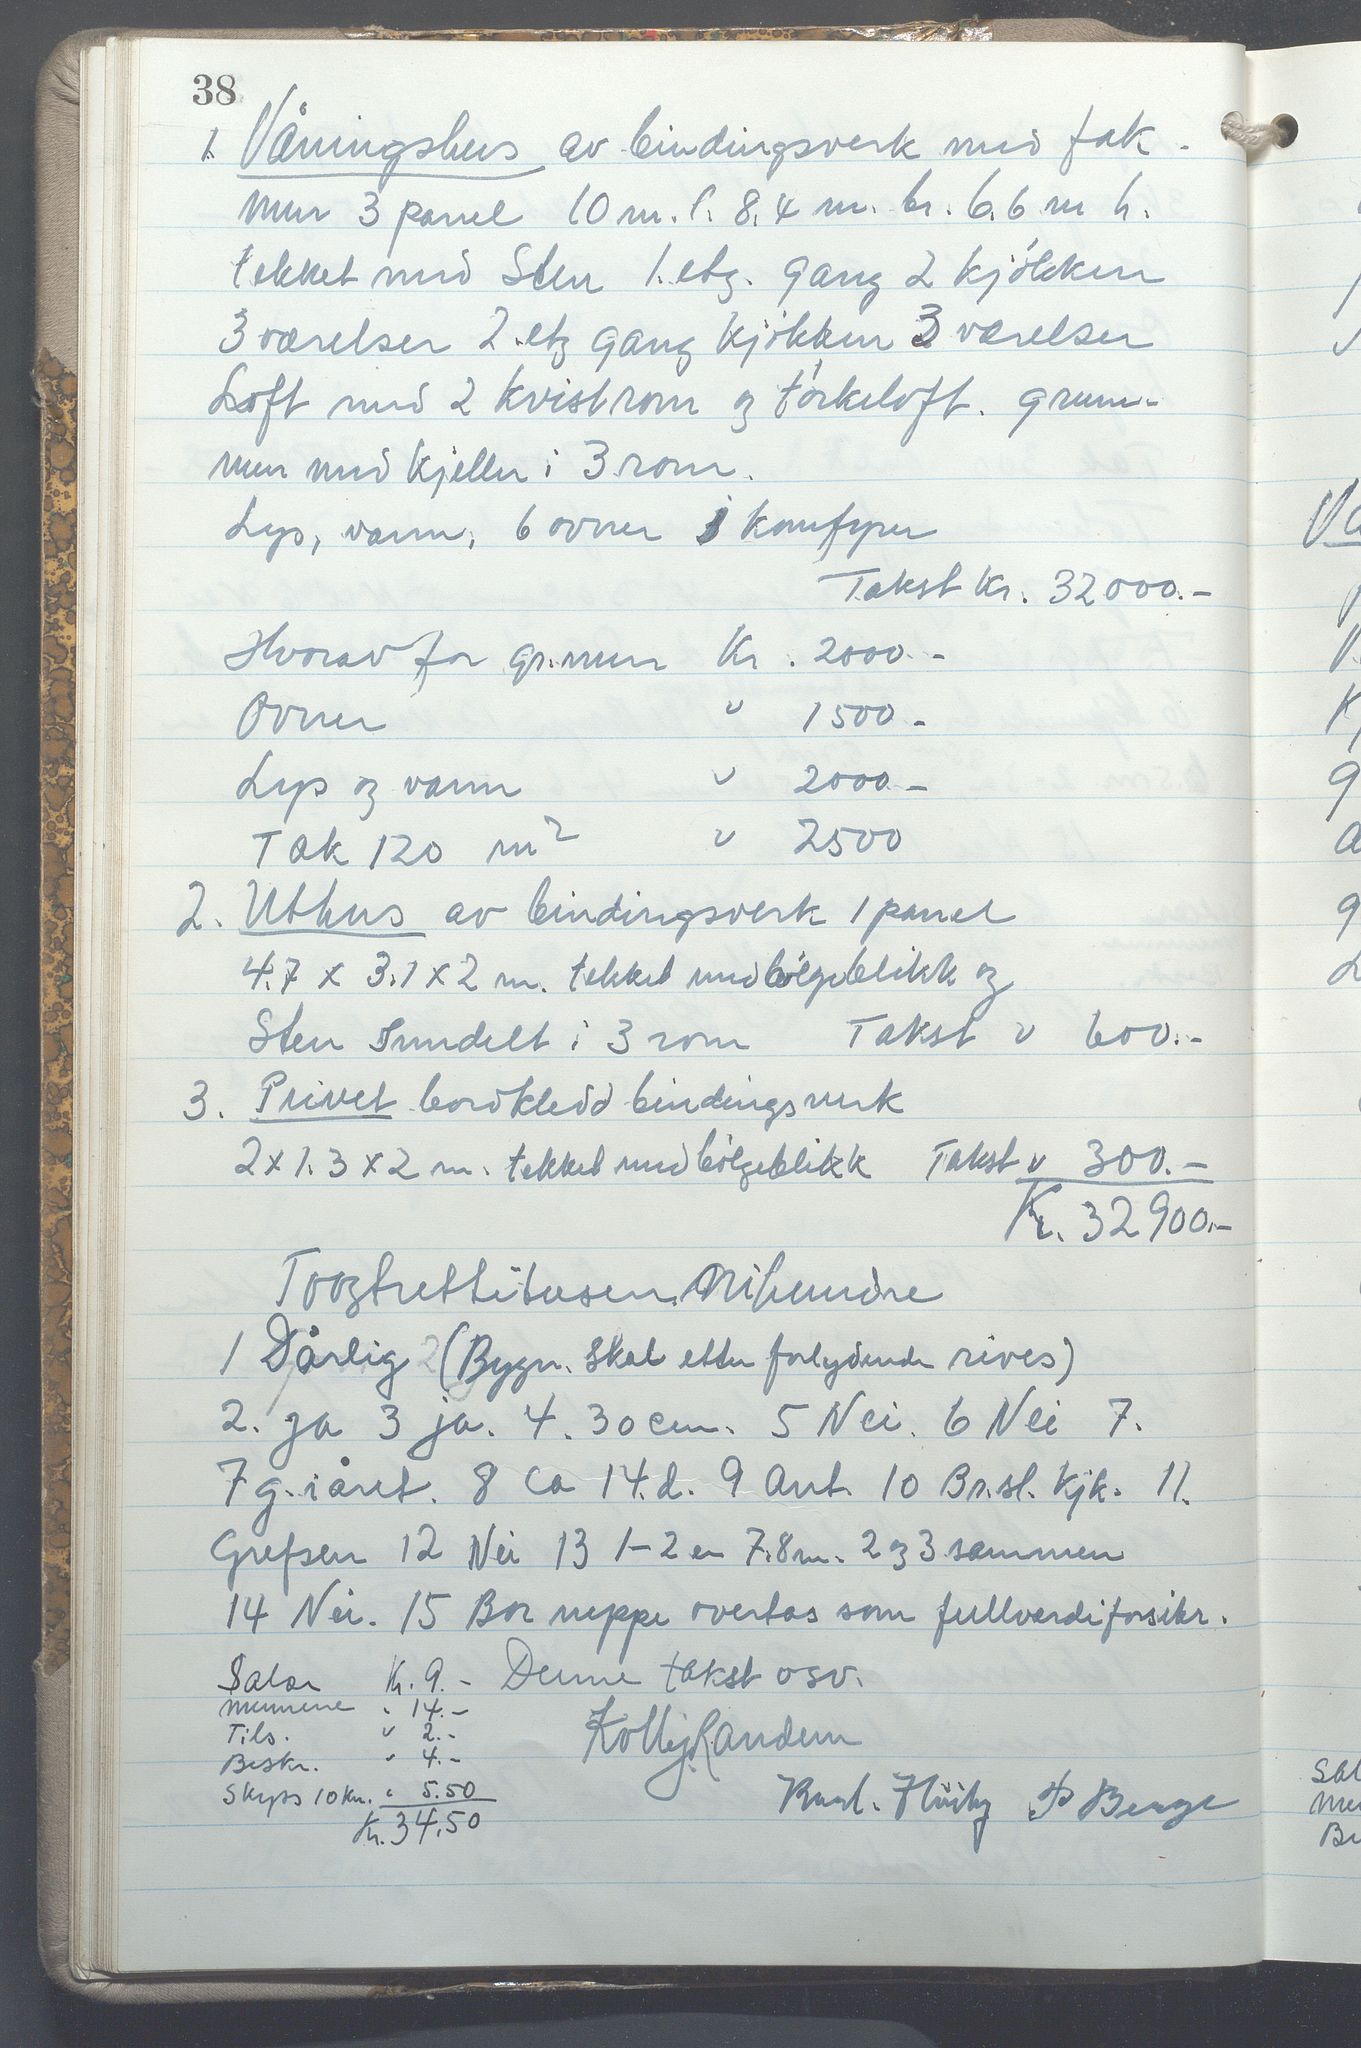 38
1. Våningshus av bindingsverk med fak-
mur 3 panel 10 m. l. 8.4 m. br. 6.6 m h.
tekket med Sten 1. etg. gang 2 kjökken
3 værelser 2. etg gang kjökken 3 værelser
Loft med 2 kvistrom og törkeloft. grunn-
mur med kjeller i 3 rom.
Lys, vann, 6 ovner 3 komfyrer
Takst Kr. 32000.-
Hvorav for gr.mur Kr. 2000.-
Ovner " 1500.-
Lys og vann " 2000.-
Tak 120 m² " 2500
2. Uthus av bindingsverk 1 panel
4.7 x 3.1 x 2 m. tekket med bölgeblikk og
Sten Inndelt i 3 rom Takst " 600.-
3. Privet bordkledd bindingsverk
2 x 1.3 x 2 m. tekket med bölgeblikk Takst " 300.-
Kr. 32900.-
Toogtrettitusen nihundre
1 Dårlig (Bygn. skal etter forlydende rives)
2. ja 3 ja. 4. 30 cm. 5 Nei. 6 Nei 7.
7 g. i året. 8 Ca 14. d. 9 Aut. 10 Br.sl. kjk. 11.
Grefsen 12 Nei 13 1-2 er 7.8 m. 2 og 3 sammen
14 Nei. 15 Bor neppe overtas som fullverdiforsikr.
Salær Kr. 9.- Denne takst osv.
Mennene " 14.-
Tils. " 2.-
Kolbj. Randem
Beskr. " 4.-
Skyss 10 km. " 5.50
Kr. 34.50
Höiby Berge